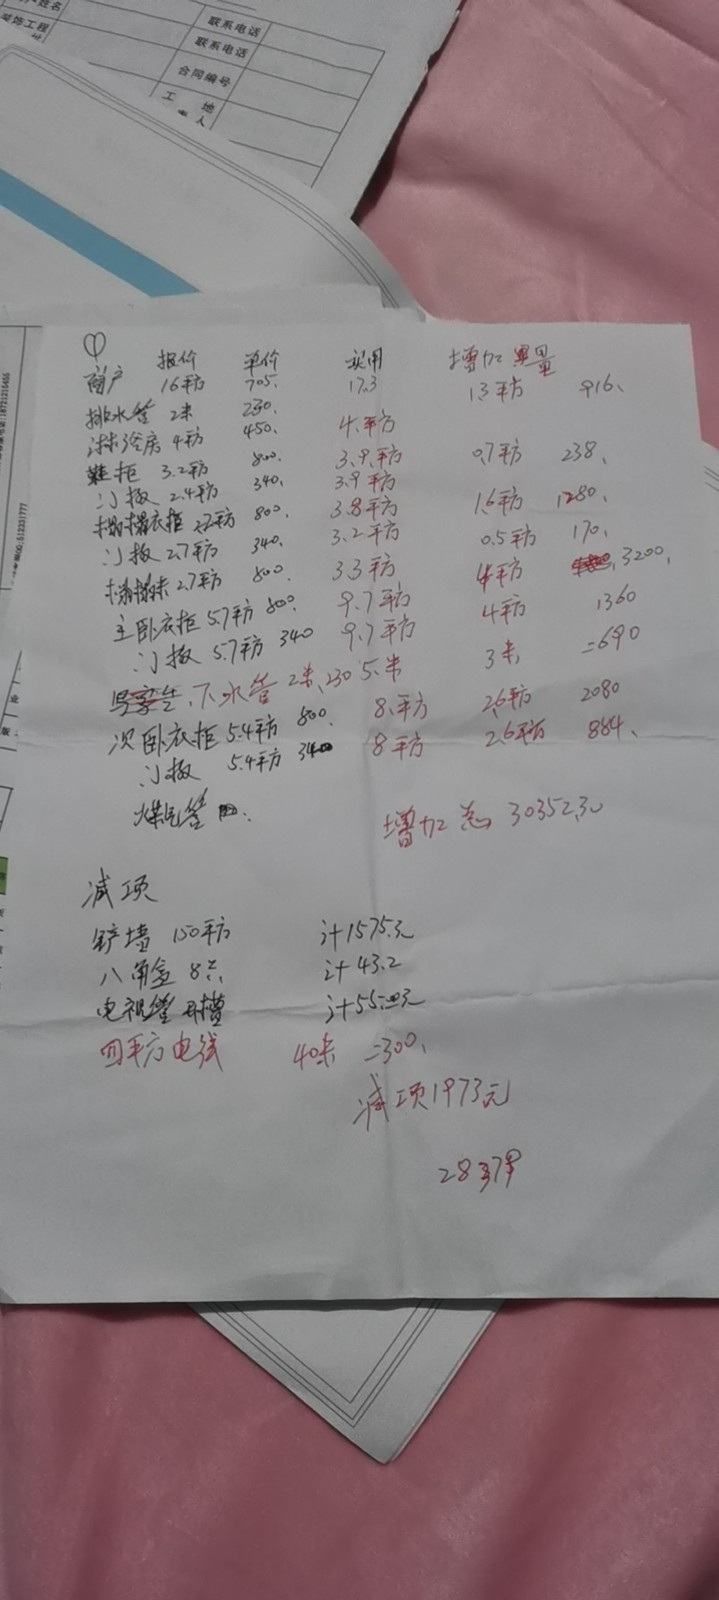 联系电话
联系电话
合同编号
工 地
①
报价 单价 实用 增加 量
窗户 16平方 705. 17.3 1.3平方 916、
排水管 2米 230.
淋浴房 4平方 450. 4.平方
鞋柜 3.2平方 800. 3.9.平方 0.7平方 238、
门板 2.4平方 340. 3.9平方
榻榻衣柜 2.2平方 800、 3.8平方 1.6平方 1280、
门板 2.7平方 340. 3.2平方 0.5平方 170、
榻榻米 2.7平方 800 3.3平方
主卧衣柜 5.7平方 800. 9.7平方 4平方 3200、
门板 5.7平方 340 9.7平方 4平方 1360
下水管 2米、230 5.米 3米、 =690
次卧衣柜 5.4平方 800. 8.平方 2.6平方 2080
门板 5.4平方 340 8平方 2.6平方 884、
煤气管
增加总 30352.30
减项
铲墙 150平方 计1575.元
八角盒 8个 计43.2
电视管 开槽 计55.00元
四平方电线 40米 =300、
减项1973元